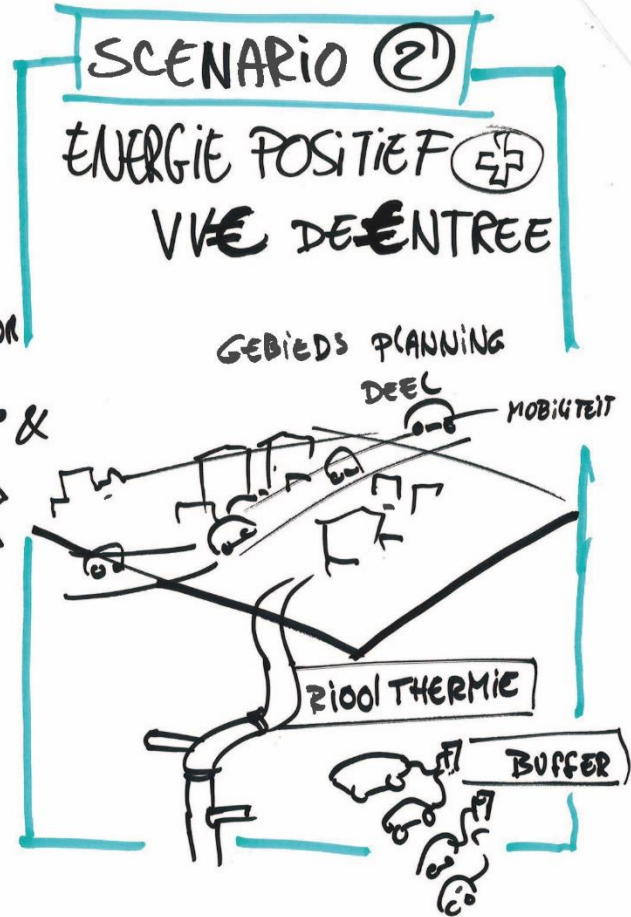 SCENARIO 2
ENERGIE POSITIEF +
VV€ DE €NTREE
GEBIEDS PLANNING
DEEL
MOBILITEIT
&
RIOOL THERMIE
BUFFER